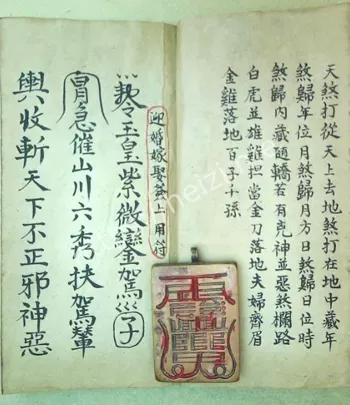 天煞打從天上去地煞打在地中藏年
煞歸年位月煞歸月方日煞歸日位時
煞歸內藏隨轎若有克神並惡煞欄路
白虎並雄雞担當金刀落地夫婦齊眉
金雞落地百子千孫
迎婚嫁娶簽上用符
令玉皇紫微鑾金駕
急催山川六秀扶駕輦
輿收斬天下不正邪神惡